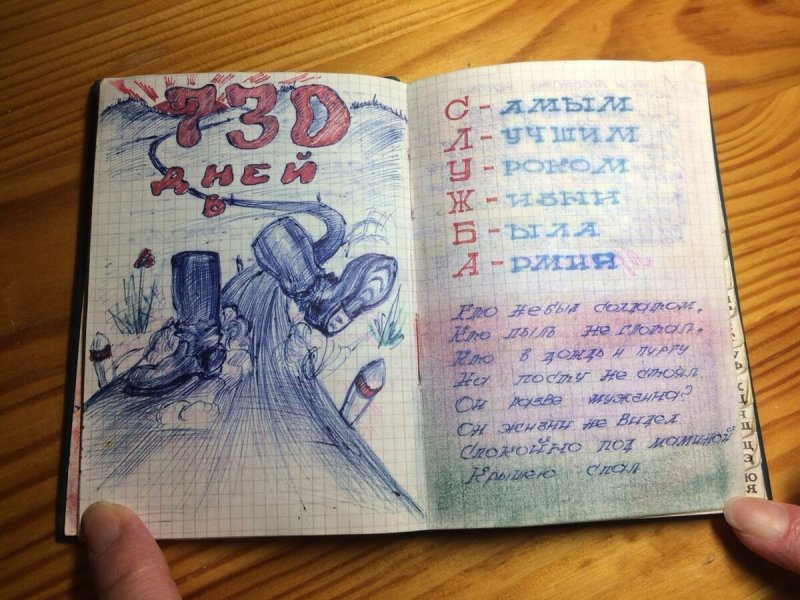 730
ДНЕЙ
В
С - АМЫМ
Л - УЧШИМ
У - РОКОМ
Ж - ИЗНИ
Б - ЫЛА
А - РМИЯ
Кто не был солдатом,
Кто пыль не глотал,
Кто в дождь и пургу
На посту не стоял.
Он разве мужчина?
Он жизни не видел
Спокойно под маминой
Крышею спал